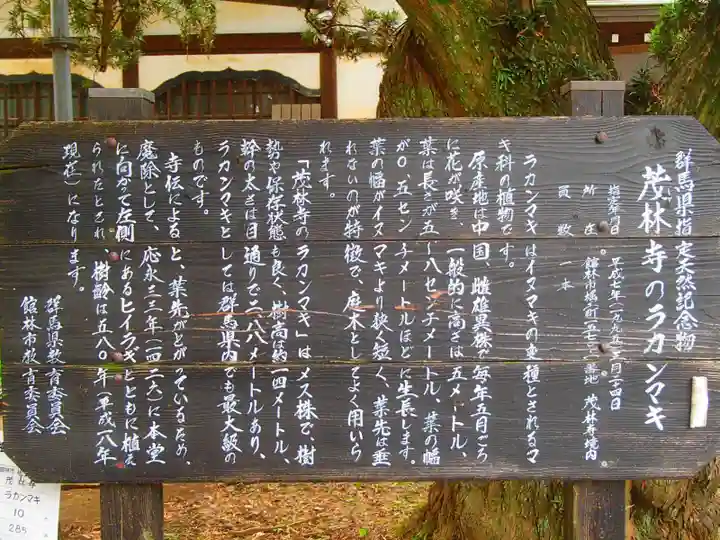 群馬県指定天然記念物
茂林寺のラカンマキ
指定年月日 平成七年(一九九五)三月二十四日
所在 館林市堀工町一五七〇番地 茂林寺境内
員数 一本
ラカンマキはイヌマキの変種とされるマ
キ科の植物です。
原産地は中国、雌雄異株で毎年五月ごろ
に花が咲き、一般的に高さは五メートル、
葉は長さが五〜八センチメートル、葉の幅
が〇、五センチメートルほどに生長します。
葉の幅がイヌマキより狭く短く、葉先は垂
れないのが特徴で、庭木としてよく用いら
れます。
「茂林寺のラカンマキ」はメス株で、樹
勢や保存状態も良く、樹高は約一四メートル、
幹の太さは目通りで二・八八メートルあり、
ラカンマキとしては群馬県内でも最大級の
ものです。
寺伝によると、葉先がとがっているため、
魔除として、応永三三年(一四二六)に本堂
に向かて左側にあるヒイラギとともに植え
られたとされ、樹齢は五八〇年(平成八年
現在)になります。
群馬県教育委員会
館林市教育委員会
茂林寺
ラカンマキ
10
285